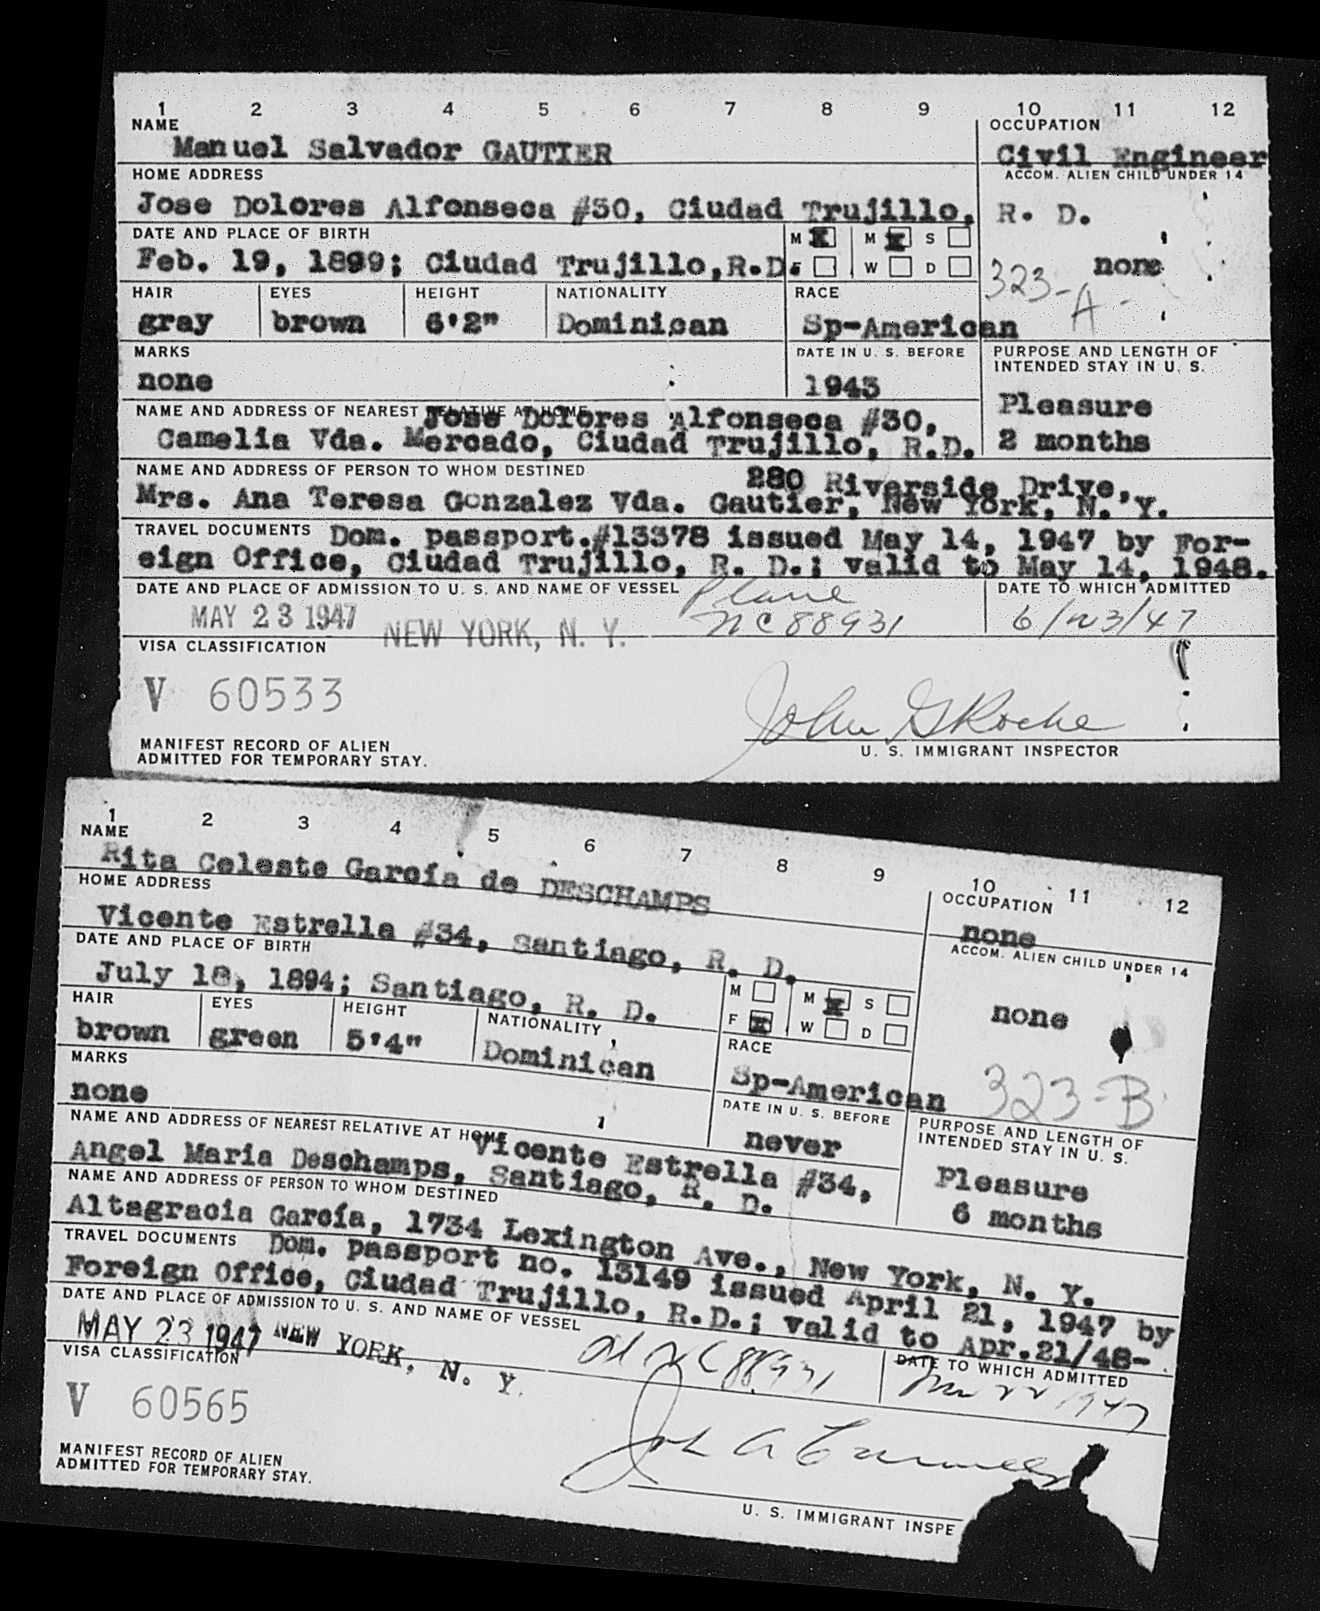 1 2 3 4 5 6 7 8 9 10 11 12
NAME
Manuel Salvador GAUTIER
OCCUPATION
Civil Engineer
HOME ADDRESS
Jose Dolores Alfonseca #30, Ciudad Trujillo,
R. D.
ACCOM. ALIEN CHILD UNDER 14
none
323-A
DATE AND PLACE OF BIRTH
Feb. 19, 1899; Ciudad Trujillo,R.D.
M X M X S
F W D
HAIR EYES HEIGHT NATIONALITY RACE
gray brown 6'2" Dominican Sp-American
MARKS
none
DATE IN U. S. BEFORE
1943
PURPOSE AND LENGTH OF
INTENDED STAY IN U. S.
Pleasure
2 months
NAME AND ADDRESS OF NEAREST RELATIVE AT HOME
Jose Dolores Alfonseca #30,
Camelia Vda. Mercado, Ciudad Trujillo, R.D.
NAME AND ADDRESS OF PERSON TO WHOM DESTINED
280 Riverside Drive,
Mrs. Ana Teresa Gonzalez Vda. Gautier, New York, N. Y.
TRAVEL DOCUMENTS Dom. passport.#13378 issued May 14, 1947 by For-
eign Office, Ciudad Trujillo, R. D.; valid to May 14, 1948.
DATE AND PLACE OF ADMISSION TO U. S. AND NAME OF VESSEL
MAY 23 1947 NEW YORK, N. Y.
Plane
NC88931
DATE TO WHICH ADMITTED
6/23/47
VISA CLASSIFICATION
V 60533
John G Roche
U. S. IMMIGRANT INSPECTOR
MANIFEST RECORD OF ALIEN
ADMITTED FOR TEMPORARY STAY.
1 2 3 4 5 6 7 8 9 10 11 12
NAME
Rita Celeste García de DESCHAMPS
OCCUPATION
none
HOME ADDRESS
Vicente Estrella #34, Santiago, R. D.
ACCOM. ALIEN CHILD UNDER 14
none
323-B
DATE AND PLACE OF BIRTH
July 18, 1894; Santiago, R. D.
M M X S
F X W D
HAIR EYES HEIGHT NATIONALITY RACE
brown green 5'4" Dominican Sp-American
MARKS
none
DATE IN U. S. BEFORE
never
PURPOSE AND LENGTH OF
INTENDED STAY IN U. S.
Pleasure
6 months
NAME AND ADDRESS OF NEAREST RELATIVE AT HOME
Vicente Estrella #34,
Angel Maria Deschamps, Santiago, R. D.
NAME AND ADDRESS OF PERSON TO WHOM DESTINED
Altagracia García, 1734 Lexington Ave., New York, N. Y.
TRAVEL DOCUMENTS Dom. passport no. 13149 issued April 21, 1947 by
Foreign Office, Ciudad Trujillo, R.D.; valid to Apr.21/48-
DATE AND PLACE OF ADMISSION TO U. S. AND NAME OF VESSEL
MAY 23 1947 NEW YORK, N. Y.
NC88931
DATE TO WHICH ADMITTED
22 1947
VISA CLASSIFICATION
V 60565
U. S. IMMIGRANT INSPE
MANIFEST RECORD OF ALIEN
ADMITTED FOR TEMPORARY STAY.